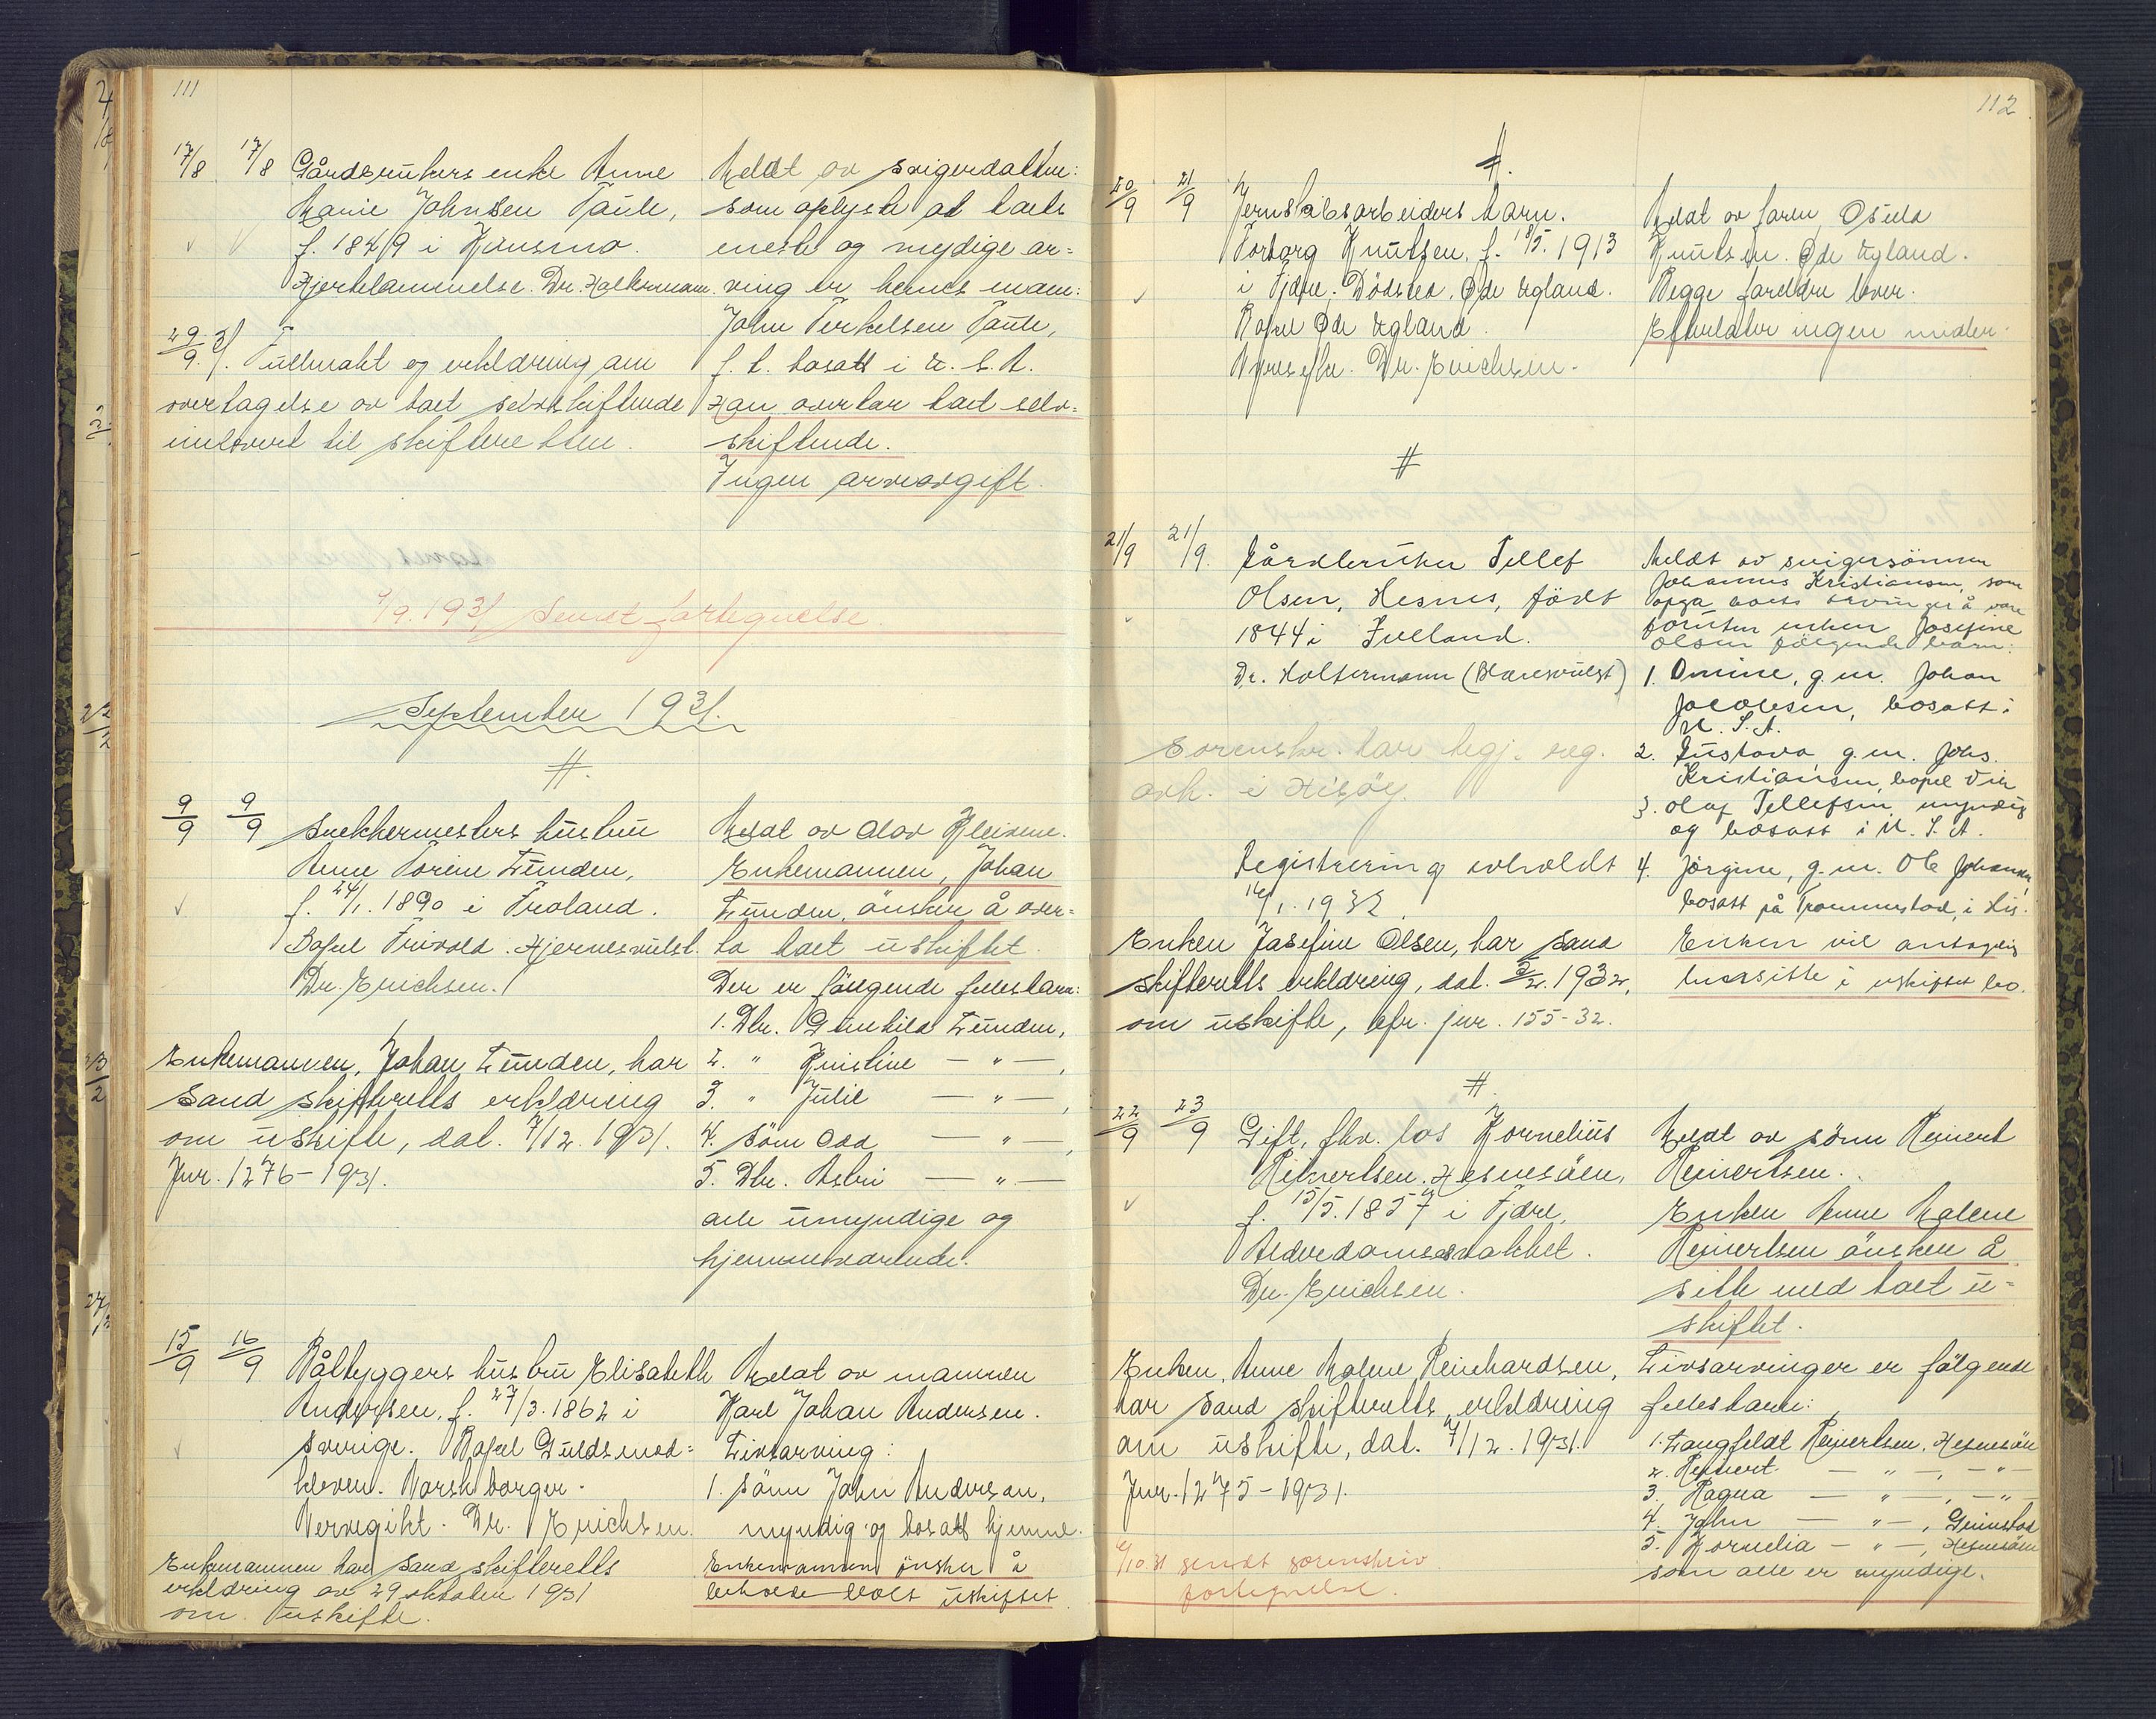 111
17/8 17/8 Gårdbrukers enke Anne
Marie Johnsen Taule,
f. 1849 i Hånsmo.
Hjertelammelse. Dr. Holtermann.
29/9.31. Fullmakt og erklæring om
overtagelse av boet selvskiftende
innlevert til skifteretten.
Meldt av svigerdatter:
som oplyste at boets
eneste og myndige ar=
ving er hennes mann:
John Terkelsen Taule,
f. t. bosatt i U. S. A.
Han overtar boet selv=
skiftende.
Ingen arveavgift.
4/9.1931 Sendt fortegnelse.
September 1931.
#.
9/9 9/9 Snekkermesters hustru
Anne Torine Lunden,
f. 24/1. 1890 i Froland.
Bopel Frivold. Hjernesvulst.
Dr. Erichsen.
Enkemannen, Johan Lunden, har
Sand skifteretts erklæring
om uskifte, dat. 7/12. 1931.
Jnr. 1276-1931.
Meldt av Olav Kleivene.
Enkemannen, Johan
Lunden, ønsker å over=
ta boet uskiftet.
Der er følgende fellesbarn:
1. Dtr. Gunhild Lunden,
2. " Kristine — " —,
3. " Julie — " —,
4. sønn Odd — " —,
5. Dtr. Astri — " —
alle umyndige og
hjemmeværende.
15/9 16/9 Båtbyggers hustru Elisabeth
Andersen, f. 27/3. 1862 i
Sverige. Bopel Guldsmed=
kleven. Norsk borger.
Nervegikt. Dr. Erichsen.
Enkemannen har Sand skifteretts
erklæring av 29 oktober 1931
om uskifte.
Meldt av mannen
Karl Johan Andersen.
Livsarving:
1. sønn John Anderson,
myndig og bosatt hjemme.
Enkemannen ønsker å
beholde boet uskiftet.
112
#.
20/9 21/9 Jernstøbsarbeiders barn.
Torborg Knutsen, f. 18/5. 1913
i Fjære. Dødsted. Øde Egland.
Bopel Øde Egland.
Nyresykd. Dr. Erichsen.
Meldt av faren Osuld
Knutsen. Øde Egland.
Begge foreldre lever.
Efterlater ingen midler.
#
21/9 21/9. Gårdbruker Tellef
Olsen, Hesnes, født
1844 i Evelland.
Dr. Holtermann (Blæresvulst)
Sorenskr. har begj. reg.
avh. i Hisøy.
Registrering avholdt
16/1. 1932.
Enken Josefine Olsen, har Sand
skifteretts erklæring, dat. 2/2. 1932,
om uskifte, cfr. jnr. 155-32.
Meldt av svigersønnen
Johannes Kristiansen, som
opga boets arvinger å være
foruten enken Josefine
Olsen følgende barn:
1. Omine, g.m. Johan
Jacobsen, bosatt i
U. S. A.
2. Gustava g.m. Johs.
Kristiansen, bopel Vik
3. Olaf Tellefsen, myndig
og bosatt i U. S. A.
4. Jørgine, g.m. Ole Johansen,
bosatt på Trommestad, i His.
Enken vil antagelig
hensitte i uskiftet bo.
#.
22/9 23/9 Gift, fhv. los Kornelius
Reinertsen. Hesnesøen,
f. 15/5. 1857 i Fjære,
Alderdomssvakhet.
Dr. Erichsen.
Enken, Anne Malene Reinhardsen,
har Sand skifteretts erklæring
om uskifte, dat. 7/12. 1931.
Jnr. 1275-1931.
6/10.31 sendt sorenskriv
fortegnelse.
Meldt av sønn Reinert
Reinertsen.
Enken Anne Malene
Reinertsen ønsker å
sitte med boet u=
skiftet.
Livsarvinger er følgende
fellesbarn:
1. Langfeldt Reinertsen, Hesnesøen
2. Reinert — " —, — " —
3. Ragna — " —, — " —
4. John — " —, Grimstad
5. Kornelia — " —, Hesnesøen
som alle er myndige.